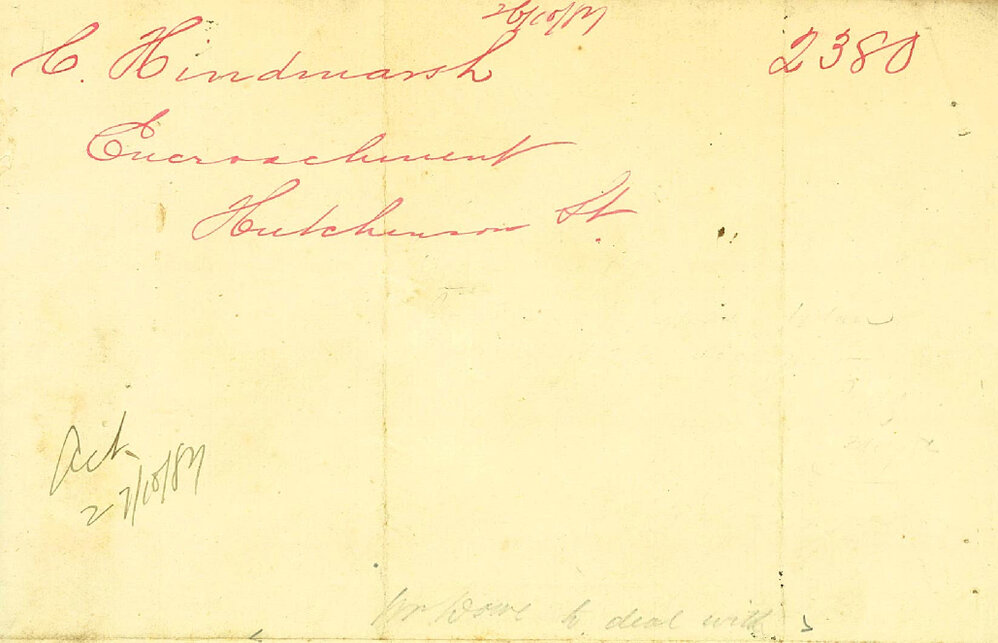 26/10/87
C. Hindmarsh 2380
Encroachment
Hutchinson St.
Act.
27/10/87
Mr Dowe to deal with